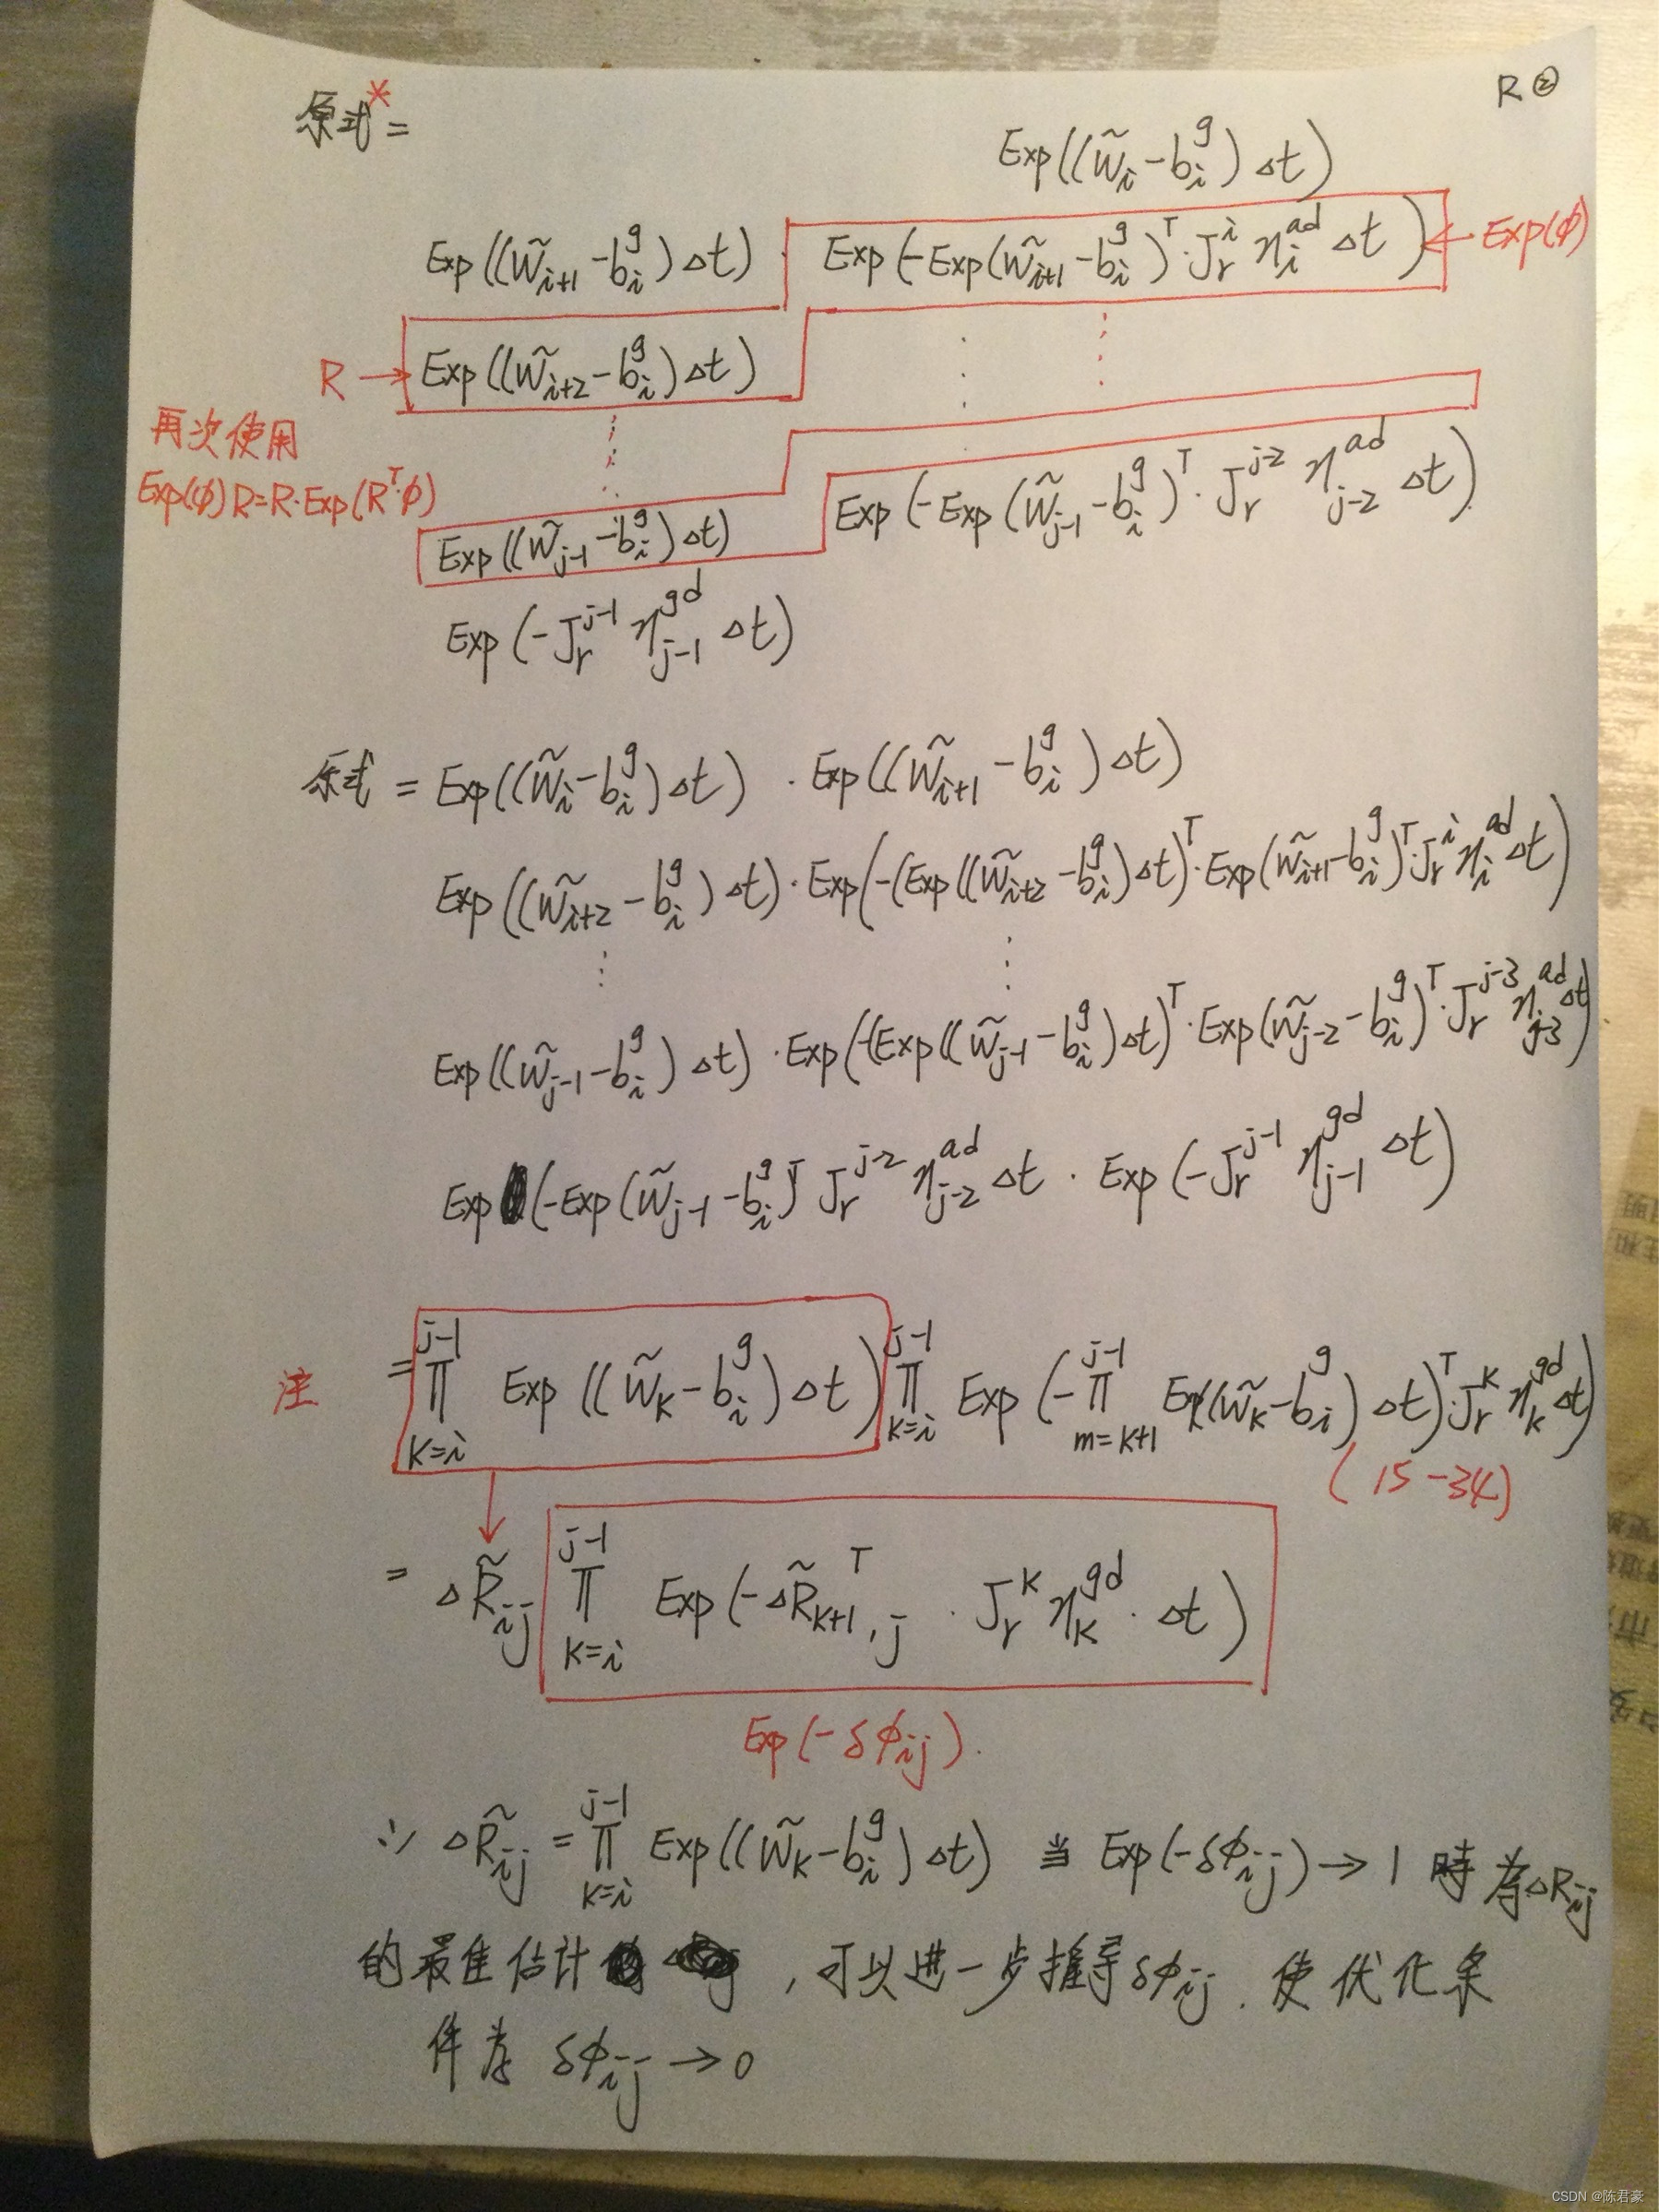 R ②
原式* =
Exp((w̃_i - b_i^g) Δt)
Exp((w̃_{i+1} - b_i^g) Δt) · Exp(-Exp(w̃_{i+1} - b_i^g)^T · J_r^i η_i^{ad} Δt) ← Exp(φ)
R → Exp((w̃_{i+2} - b_i^g) Δt)
再次使用
Exp(φ) R = R · Exp(R^T · φ)
Exp((w̃_{j-1} - b_i^g) Δt) Exp(-Exp(w̃_{j-1} - b_i^g)^T · J_r^{j-2} η_{j-2}^{ad} Δt)
Exp(-J_r^{j-1} η_{j-1}^{gd} Δt)
原式 = Exp((w̃_i - b_i^g) Δt) · Exp((w̃_{i+1} - b_i^g) Δt)
Exp((w̃_{i+2} - b_i^g) Δt) · Exp(-(Exp((w̃_{i+2} - b_i^g) Δt)^T · Exp(w̃_{i+1} - b_i^g)^T · J_r^i η_i^{ad} Δt)
⋮ ⋮
Exp((w̃_{j-1} - b_i^g) Δt) · Exp(-(Exp((w̃_{j-1} - b_i^g) Δt)^T · Exp(w̃_{j-2} - b_i^g)^T · J_r^{j-3} η_{j-3}^{ad} Δt)
Exp(-Exp(w̃_{j-1} - b_i^g)^T J_r^{j-2} η_{j-2}^{ad} Δt · Exp(-J_r^{j-1} η_{j-1}^{gd} Δt)
注 = ∏_{k=i}^{j-1} Exp((w̃_k - b_i^g) Δt) ∏_{k=i}^{j-1} Exp(-∏_{m=k+1}^{j-1} Exp((w̃_k - b_i^g) Δt)^T · J_r^k η_k^{gd} Δt)
(15-34)
= ΔR̃_{ij} ∏_{k=i}^{j-1} Exp(-ΔR̃_{k+1,j}^T · J_r^k η_k^{gd} · Δt)
Exp(-δφ_{ij}).
∵ ΔR̃_{ij} = ∏_{k=i}^{j-1} Exp((w̃_k - b_i^g) Δt) 当 Exp(-δφ_{ij}) → 1 時 为 ΔR_{ij}
的最佳估计, 可以进一步推导 δφ_{ij}. 使优化条
件为 δφ_{ij} → 0
CSDN @陈君豪